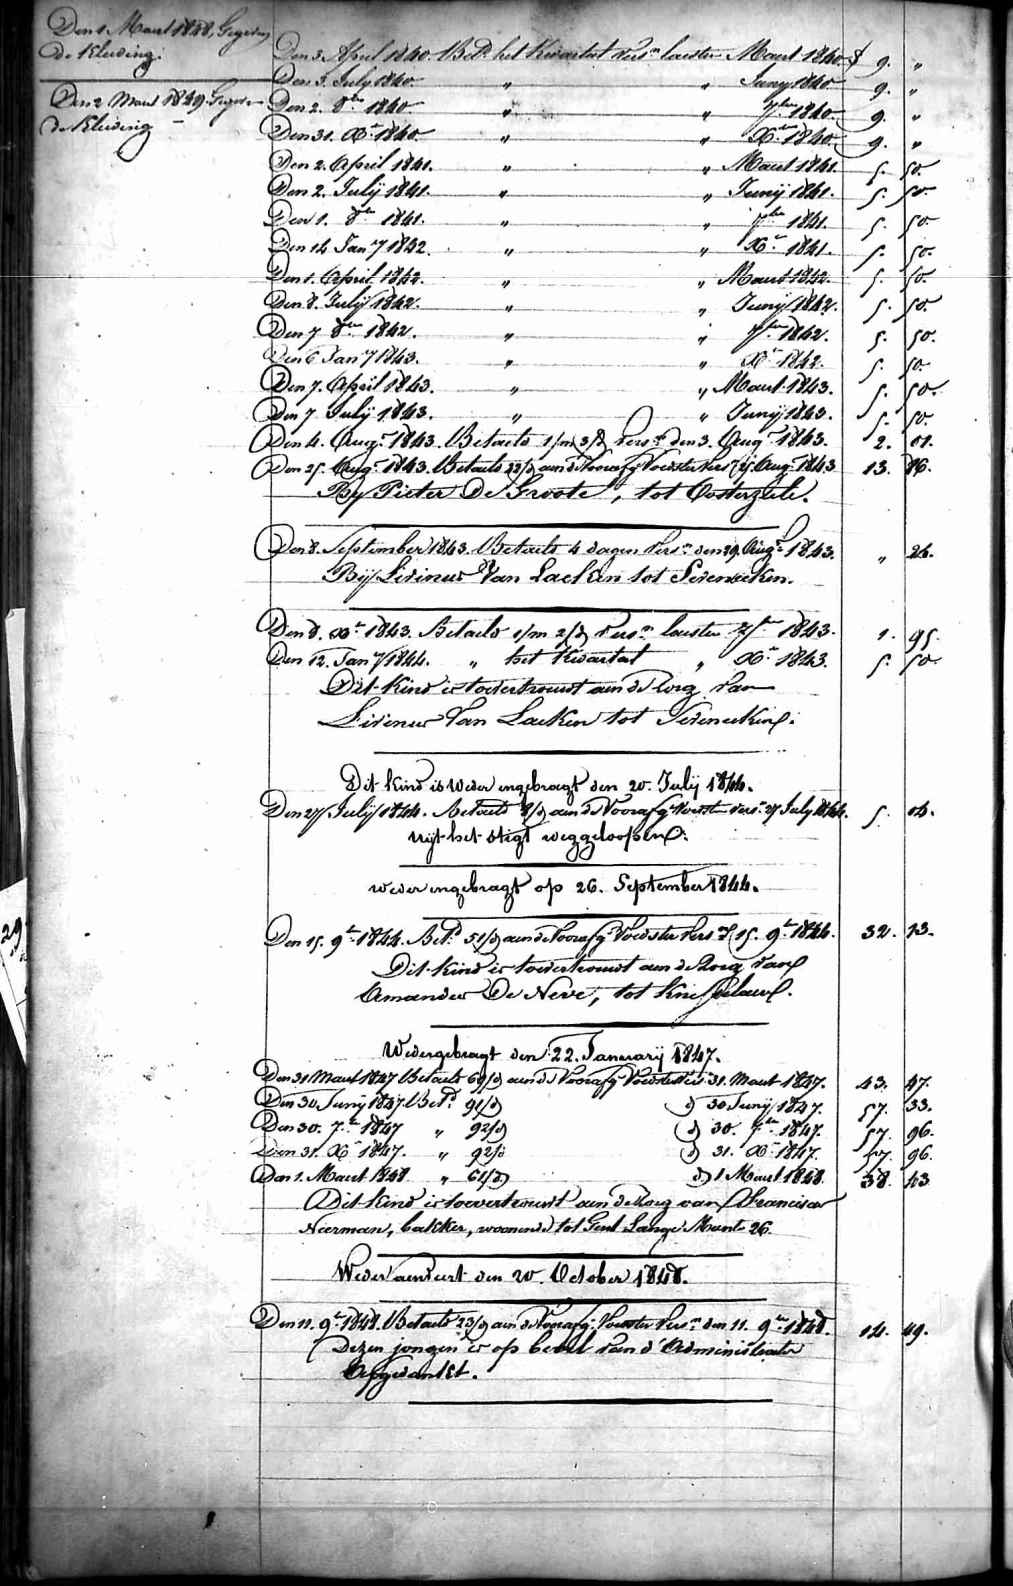 Den 1 Maart 1848, Gegeven
De Kleeding.
Den 2 Maart 1849 Gegeven
de Kleeding
Den 3. April 1840. Bet.d het Kwartaal vers.n laesten Maart 1840 f 9. "
Den 3. July 1840. " " Juny 1840. 9. "
Den 2. 8.bre 1840 " " 7.bre 1840. 9. "
Den 31. X.r 1840. " " X.bre 1840. 9. "
Den 2. April 1841. " " Maart 1841. 5. 50.
Den 2. Julij 1841. " " Junij 1841. 5. 50.
Den 1. 8.bre 1841. " " 7.bre 1841. 5. 50.
Den 14 Jan.y 1842. " " X.r 1841. 5. 50.
Den 1. April 1842. " " Maart 1842. 5. 50.
Den 8. Julij 1842. " " Junij 1842. 5. 50.
Den 7 8.bre 1842. " " 7.bre 1842. 5. 50.
Den 6 Jan.y 1843. " " X.r 1842. 5. 50.
Den 7. April 1843. " " Maart 1843. 5. 50.
Den 7 Julij 1843. " " Junij 1843. 5. 50.
Den 4. Aug.t 1843. Betaeld 1/m 3/d vers.n den 3. Aug.t 1843. 2. 01.
Den 25. Aug.t 1843. Betaeld 22/d aen de Voorafg. Voedster vers. 25 Aug.t 1843 13. 86.
By Pieter De Groote, tot Oosterzele.
Den 8. September 1843. Betaeld 4 dagen vers.n den 29. Aug.t 1843. " 24.
Bij Livinus Van Laeken tot Sevenecken.
Den 8. X.r 1843. Betaeld 1/m 2/d vers.n laesten 7.bre 1843. 1. 95.
Den 12. Jan.y 1844. " het Kwartaal " X.r 1843. 5. 50.
Dit Kind is toevertrouwt aen de Zorg van
Livinus Van Laeken tot Sevenecken.
Dit Kind is weder ingebragt den 20. July 1844.
Den 27 Julij 1844. Betaeld 8/d aen de Voorafg. Voedster vers.n 27 July 1844. 5. 04.
uijt het stigt weggeloopen.
weder ingebragt op 26. September 1844.
Den 15. 9.bre 1844. Bet.d 51/d aen de Voorafg. Voedster vers. 15. 9.bre 1844. 32. 13.
Dit Kind is toevertrouwt aen de Zorg van
Amandus De Neve, tot Knesselaere.
Wedergebragt den 22. January 1847.
Den 31 Maart 1847 Betaeld 69/d aen de Voorafg. Voedster vers. 31. Maart 1847. 43. 47.
Den 30. Junij 1847. Bet.d 91/d d 30 Junij 1847. 57. 33.
Den 30. 7.bre 1847 " 92/d d 30. 7.bre 1847. 57. 96.
Den 31. X.r 1847. " 92/d d 31. X.r 1847. 57. 96.
Den 1. Maart 1848 " 61/d d 1 Maart 1848. 38. 43
Dit Kind is toevertrouwt aen de Zorg van Franciscus
Neerman, bakker, woonende tot Gent Lange Munt 26.
Weder aenveert den 20. October 1848.
Den 11. 9.bre 1848. Betaeld 23/d aen de Voorafg. Voedster vers.n den 11. 9.bre 1848. 14. 49.
Dezen jongen is op bevel van d'Administratie
Afgedankt.
29